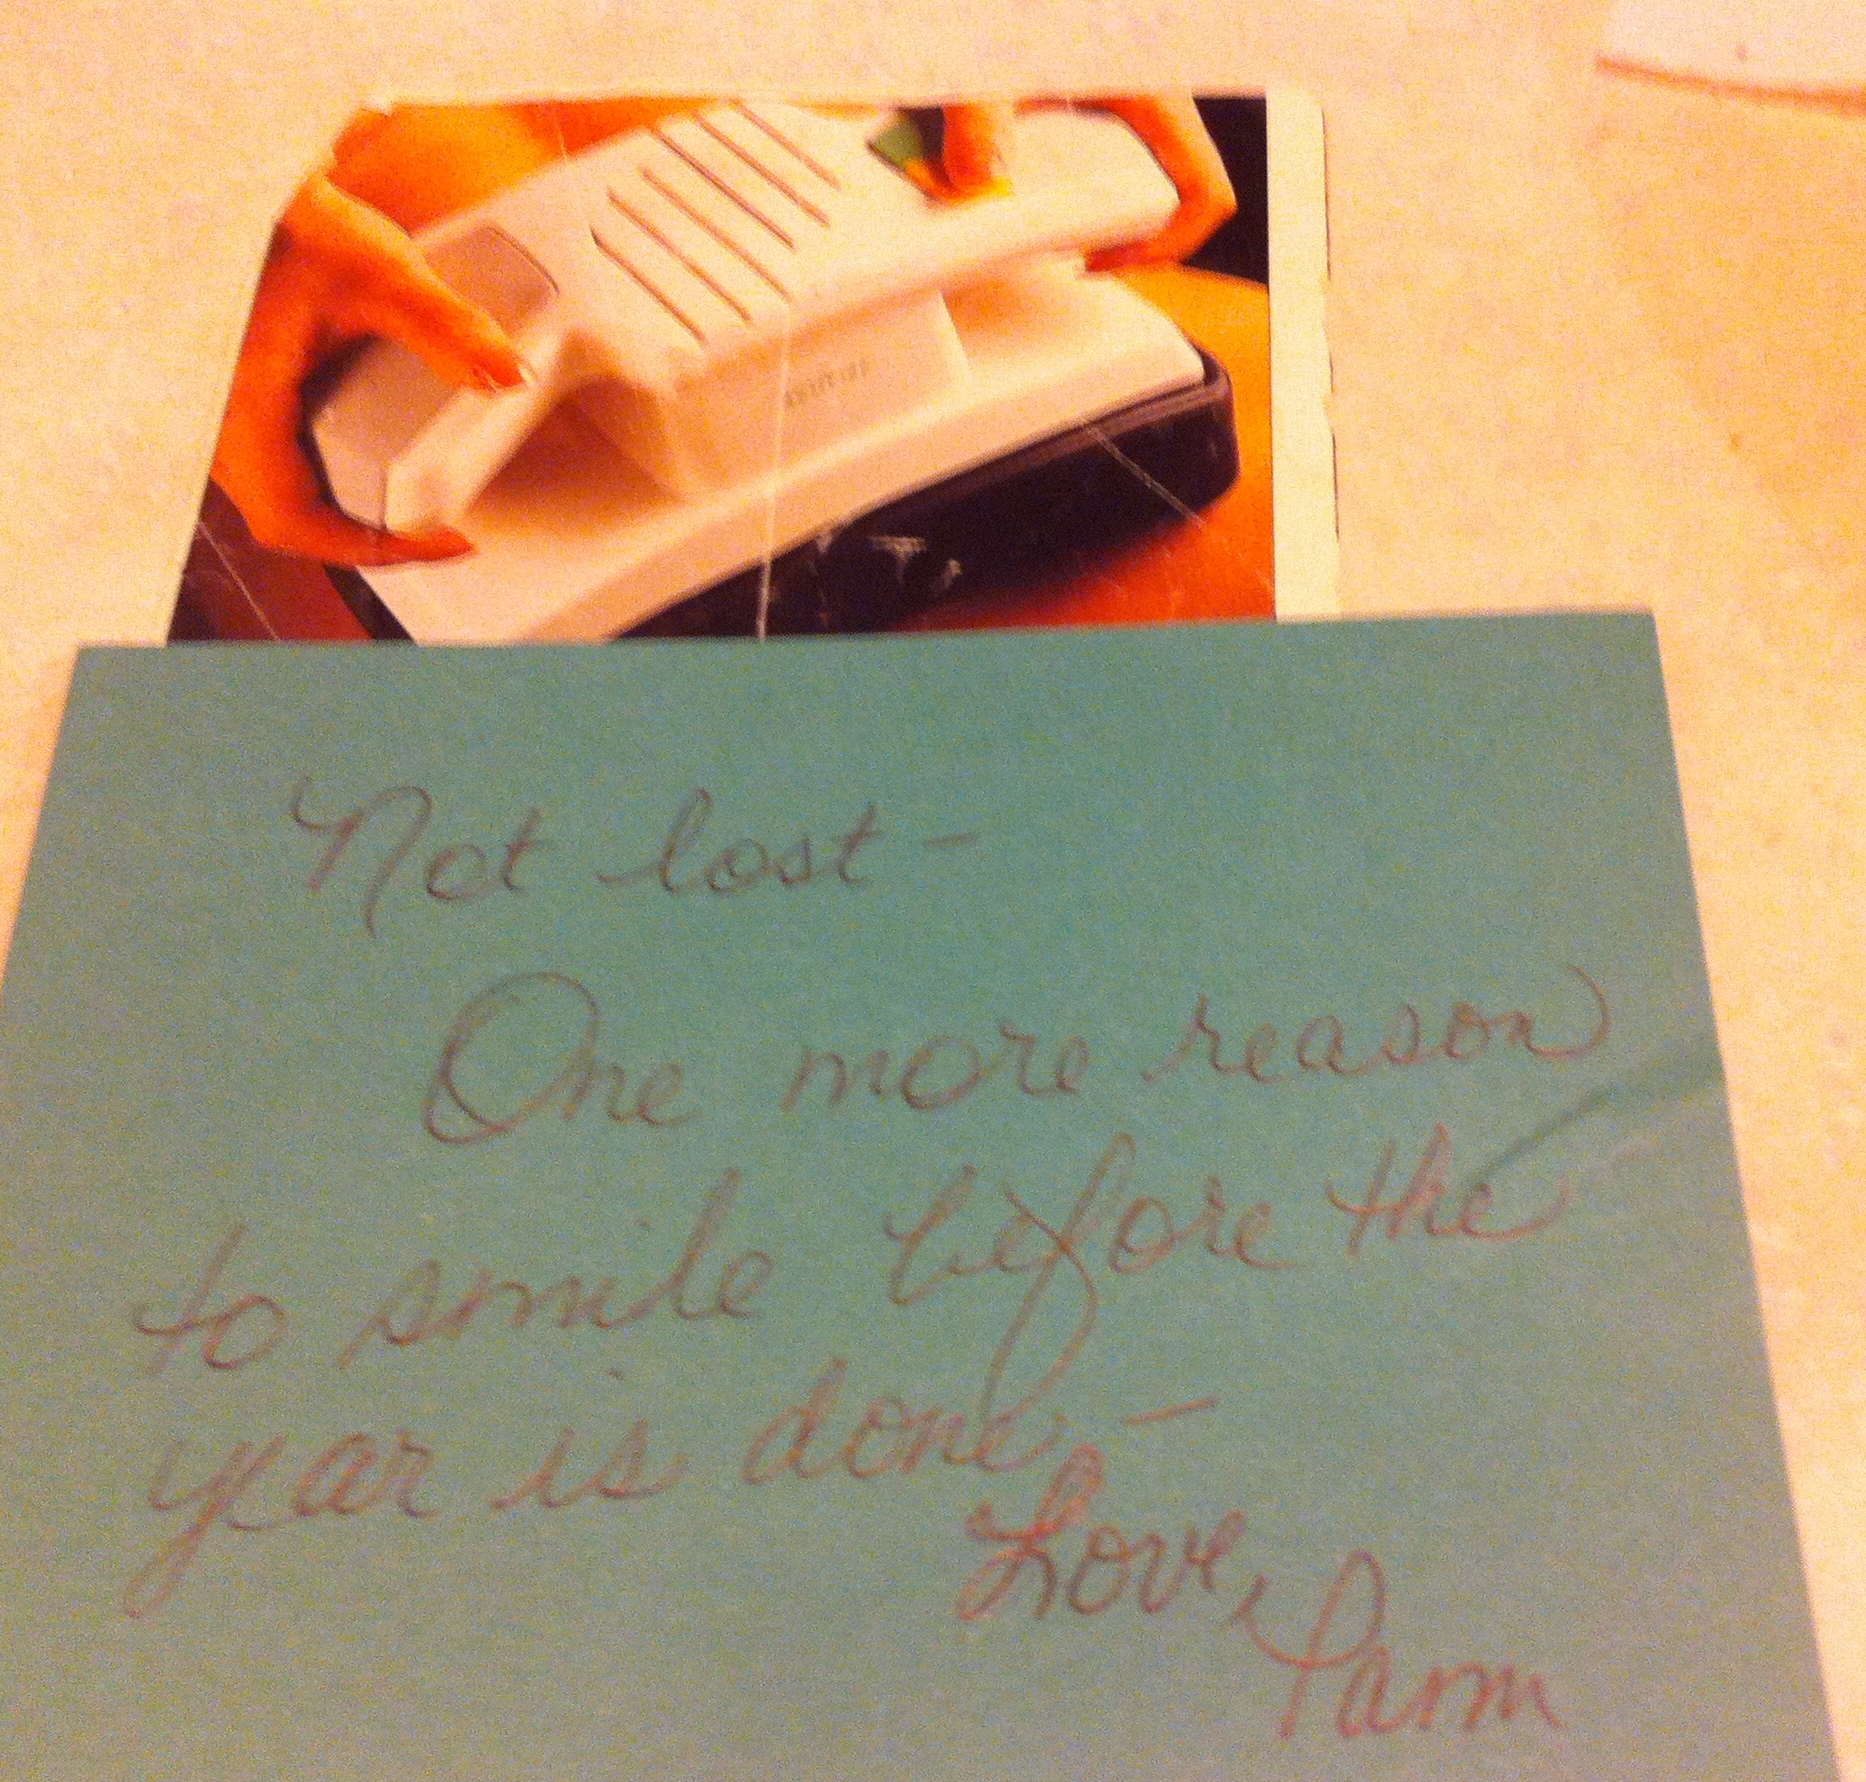 Not lost -
One more reason
to smile before the
year is done -
Love,
Pam